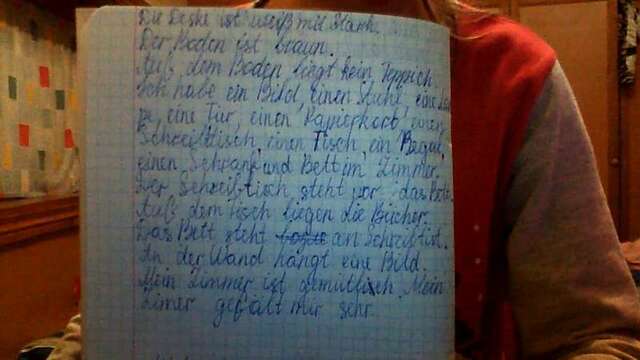 Die Deske ist weiß mit Stank.
Der Boden ist braun.
Auß dem Boden liegt kein Teppich.
Ich habe ein Bild, einen Stuhl, eine
pe, eine Tür, einen Papierkorb, einen
Schreibtisch, einen Tisch, ein Regal,
einen Schrank und Bett im Zimmer.
Der Schreibtisch steht vor das Bett.
Auß dem Tisch liegen die Bücher.
Das Bett steht an Schreibtist.
An der Wand hängt eine Bild.
Mein Zimmer ist gemütlich. Mein
Zimer gefält mir sehr.